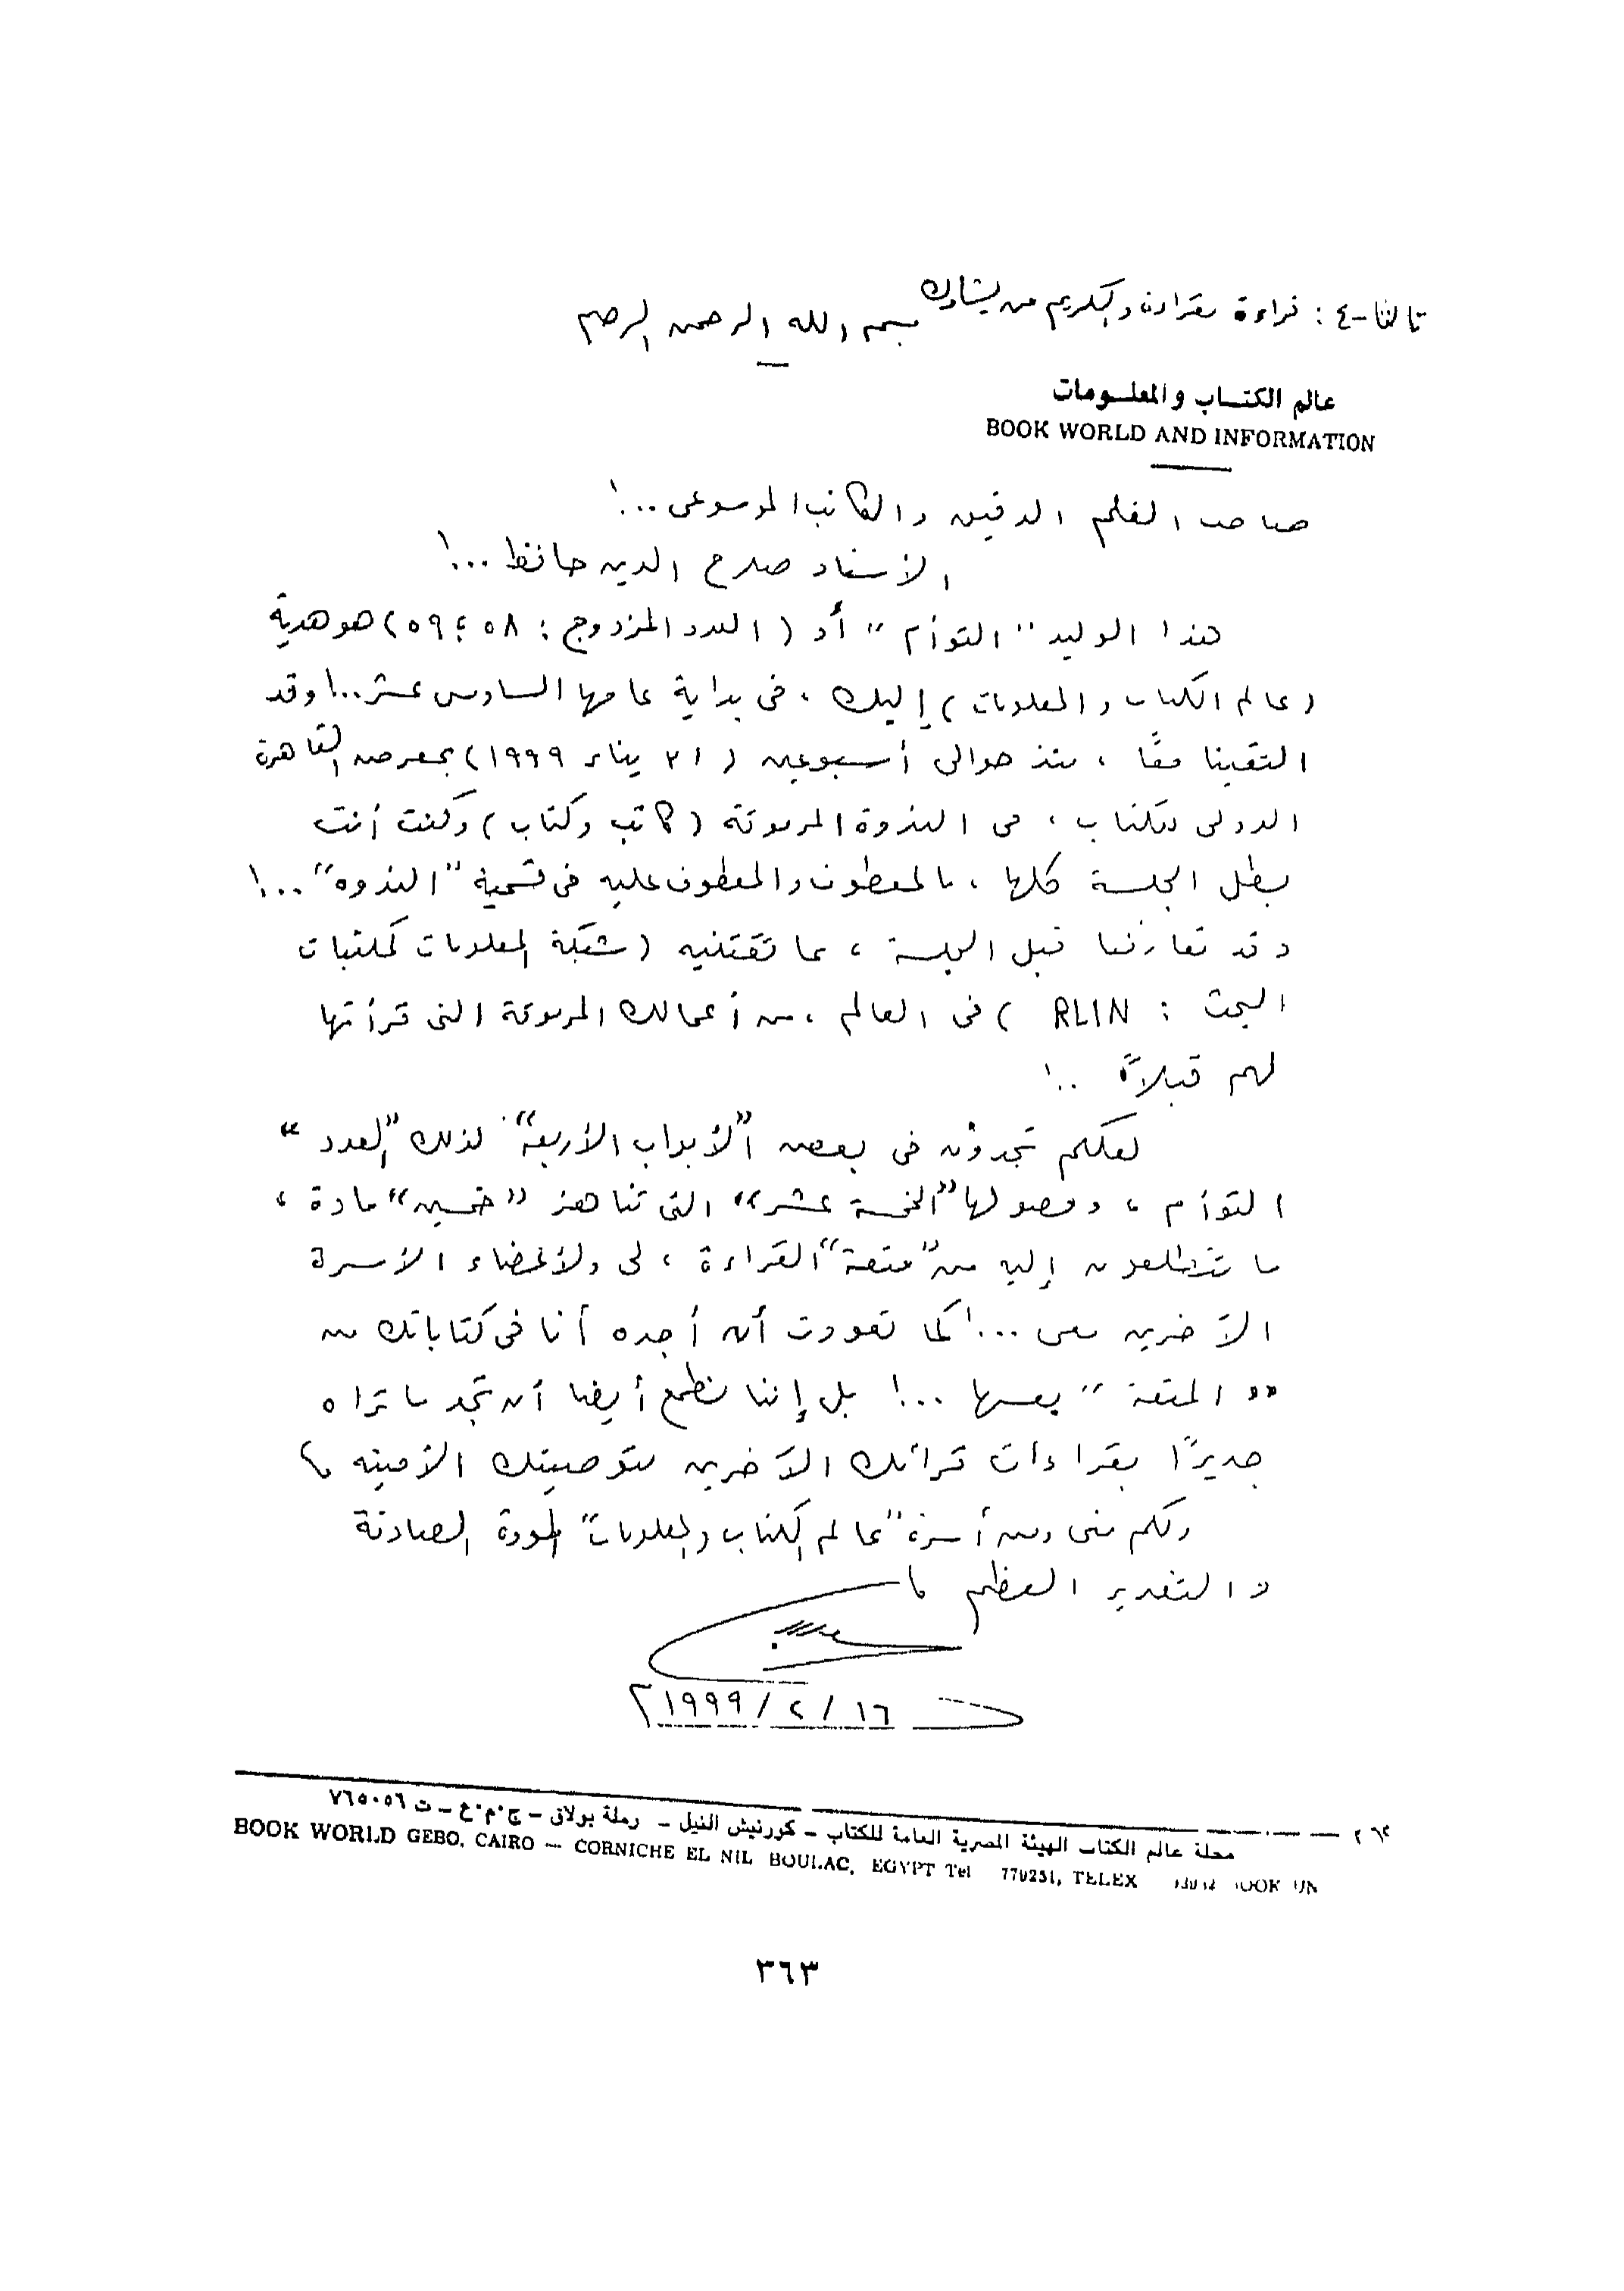 ثالثا-٤ : قراءة من يشارك
بسم الله الرحمن الرحيم
عالم الكتــاب والمعلــومات
BOOK WORLD AND INFORMATION
صاحب القلم الدقيق والكاتب الموسوعى ..!
الأستاذ صلاح الدين حافظ ...!
هذا الوليد "التوأم" أو (العدد المزدوج : ٥٨ ؛ ٥٩) هو هدية
(عالم الكتاب والمعلومات) إليك ، فى بداية عامها السادس عشر ..! وقد
التقينا معًا ، منذ حوالى أسبوعين (٣١ يناير ١٩٩٩) بمعرض القاهرة
الدولى للكتاب ، فى الندوة المرموقة (كاتب وكتاب) وكنت أنت
بطل الجلسة كلها ، بالمعطوف والمعطوف عليه فى تسمية "الندوه" ..!
وقد تعارفنا قبل الجلسة ، بما تقتنيه (شبكة المعلومات لمكتبات
البحث : RLIN) فى العالم ، من أعمالك المرموقة التى قرأتها
لهم قبلاً ..!
لعلكم تجدون فى بعض "الأبواب الأربعة" لذلك "العدد"
التوأم ، وفصولها "الخمسة عشر" التى تناهز "خمسين" مادة ،
ما تتطلعون إليه من "متعة" القراءة ، لى ولأعضاء الأسرة
الآخرين معى ...! كما تعودت أن أجده أنا فى كتاباتك من
"المتعة" بعينها ...! بل إننا نطمع أيضا أن تجد ما تراه
جديرًا بقراءات قرائك الآخرين بتوصيتك الأمينه
ولكم منى ومن أسرة "عالم الكتاب والمعلومات" المودة الصادقة
والتقدير العظيم
١٦ / ٢ / ١٩٩٩م
مجلة عالم الكتاب الهيئة المصرية العامة للكتاب - كورنيش النيل - رملة بولاق - ج.م.ع - ت ٧٦٥٠٥٦
BOOK WORLD GEBO. CAIRO — CORNICHE EL NIL BOULAC, EGYPT Tel 770251, TELEX
٣٦٣